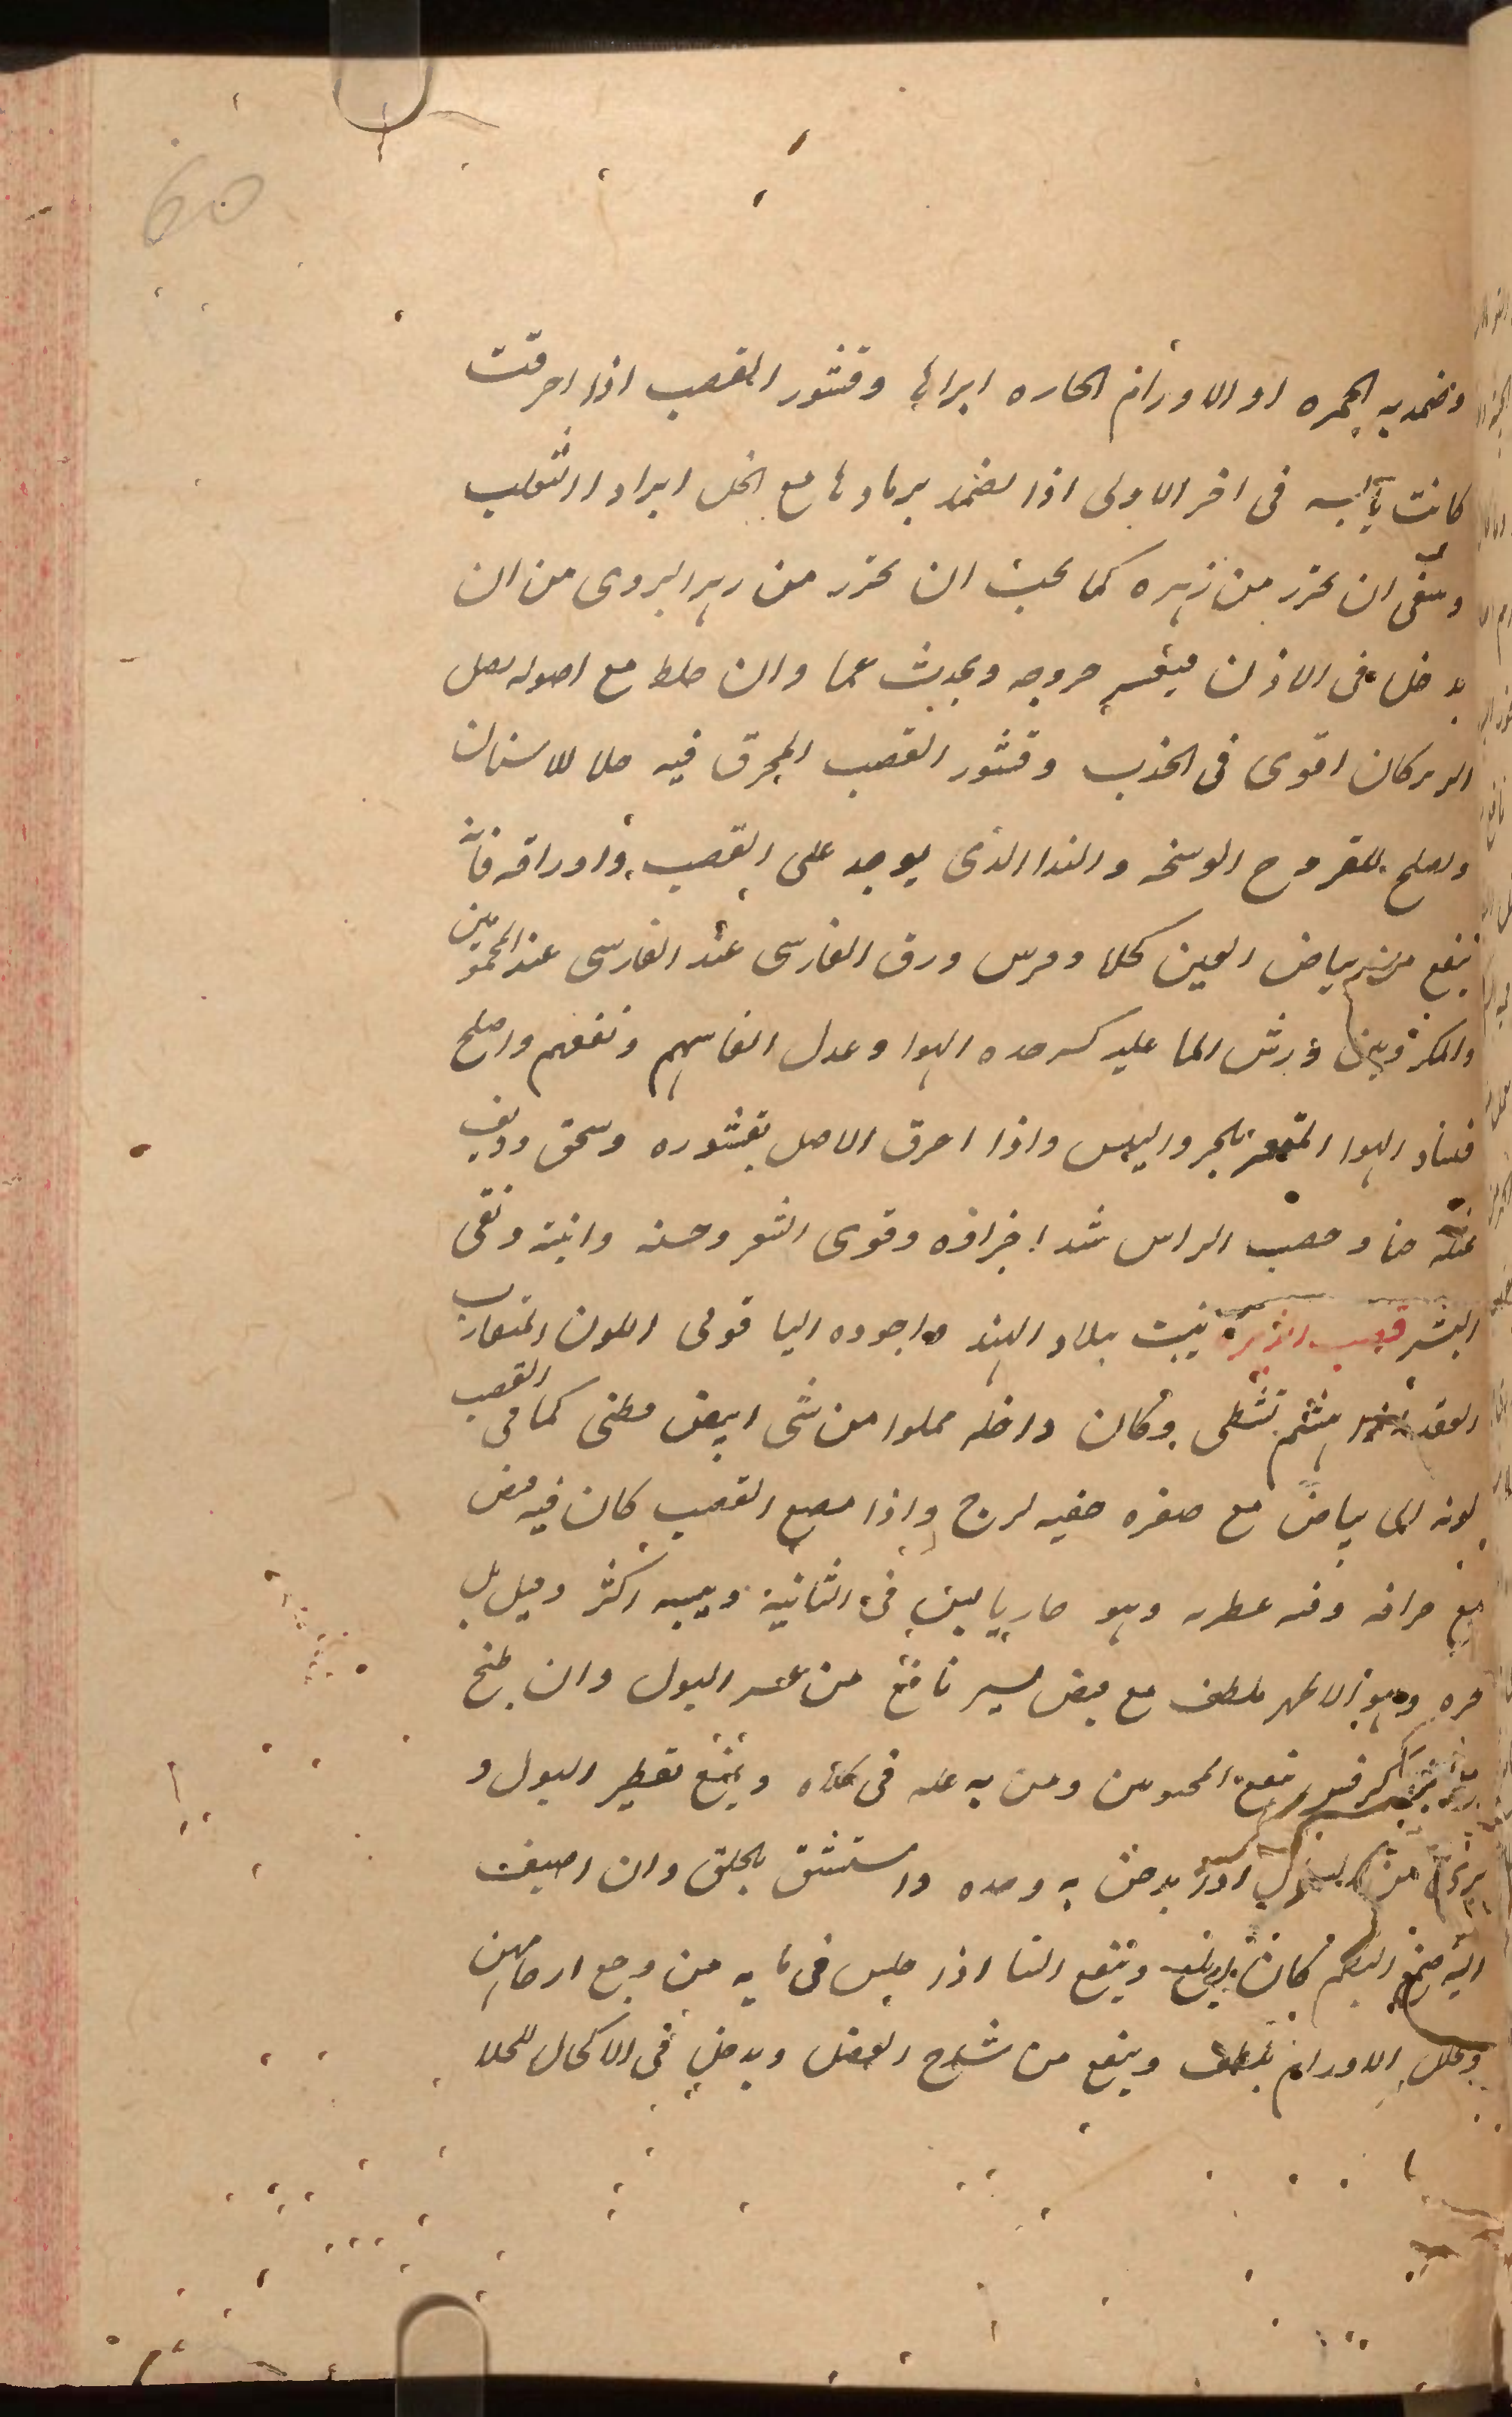 60
وضمد به الحمره او الاورام الحاره ابراها وقشور القصب اذا احرقت
كانت يابسه فى اخر الاولى اذا تضمد برمادها مع الخل ابرا داا الثعلب
وينبغى ان يحترز من زهره كما يجب ان يحترز من زهر البردى من ان
يدخل فى الاذن فيعسر خروجه ويحدث عما وان خلط مع اصوله بصل
الزير كان اقوى فى الجذب وقشور القصب المحرق فيه جلا للاسنان
ويصلح للقروح الوسخه والندا الذى يوجد على القصب واوراقه فانه
ينفع من بياض العين كحلا وفرش ورق الفارسى عند الفارسى عند المحمومين
والمكروبين ورش الما عليه كسر حده الهوا وعدل انفاسهم ونفعهم واصلح
فساد الهوا المتغير بالحر واليبس واذا احرق الاصل بقشوره وسحق وديف
حنا وعصب الراس شد اجزاؤه وقوى الشعر وحسنه وانبته ونقى
البشر قصب الذريره ينبت ببلاد الهند واجوده الياقوتى اللون المتقارب
العقد يتهشم تشظى وكان داخله مملوا من شى ابيض قطنى كما فى القصب
لونه الى بياض مع صفره خفيه لزج واذا مضغ القصب كان فيه قبض
مع حرافه وفيه عطريه وهو حار يابس فى الثانية ويبسه اكثر وقيل بل
حره وهو الاظهر ملطف مع قبض يسير نافع من عسر البول وان طبخ
كرفس نفع المحبونين ومن به عله فى كلاه وينفع تقطير البول و
يدخن به وحده واستنشق بالحلق وان اضيف
اليه صمغ البطم كان ابلغ وينفع النسا اذا جلس فى مايه من وجع ارحامهن
ويحلل الاورام بلطف وينفع من شدخ العضل ويدخل فى الاكحال للجلا